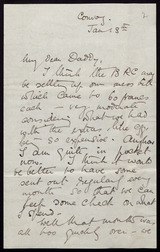 Convoy
Jan 13th
My dear Daddy,
I think the BRC may
be settling up our mess bill
which came to 60 francs
each – very moderate
considering what we had
with the extras, like eggs
being so expensive.
I am quite in funds
now. I think it would
be better to have some
sent out regular every
month so that we can
keep some check on what
I spend.
Well that month was
all too quickly over – we